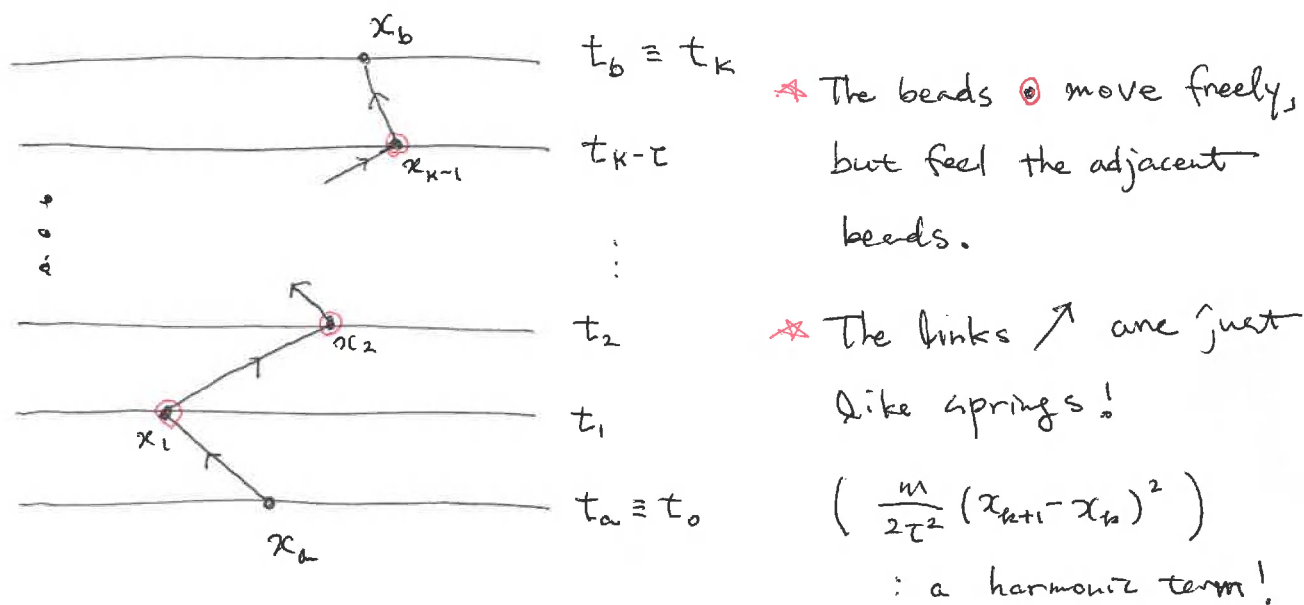 x_b
t_b ≡ t_K
t_{K-τ}
x_{K-1}
⋮
t_2
x_2
t_1
x_1
t_a ≡ t_0
x_a
☆ The beads ⊙ move freely,
but feel the adjacent
beads.
☆ The links ↗ are just
like springs!
( \frac{m}{2τ^2} (x_{k+1} - x_k)^2 )
: a harmonic term!